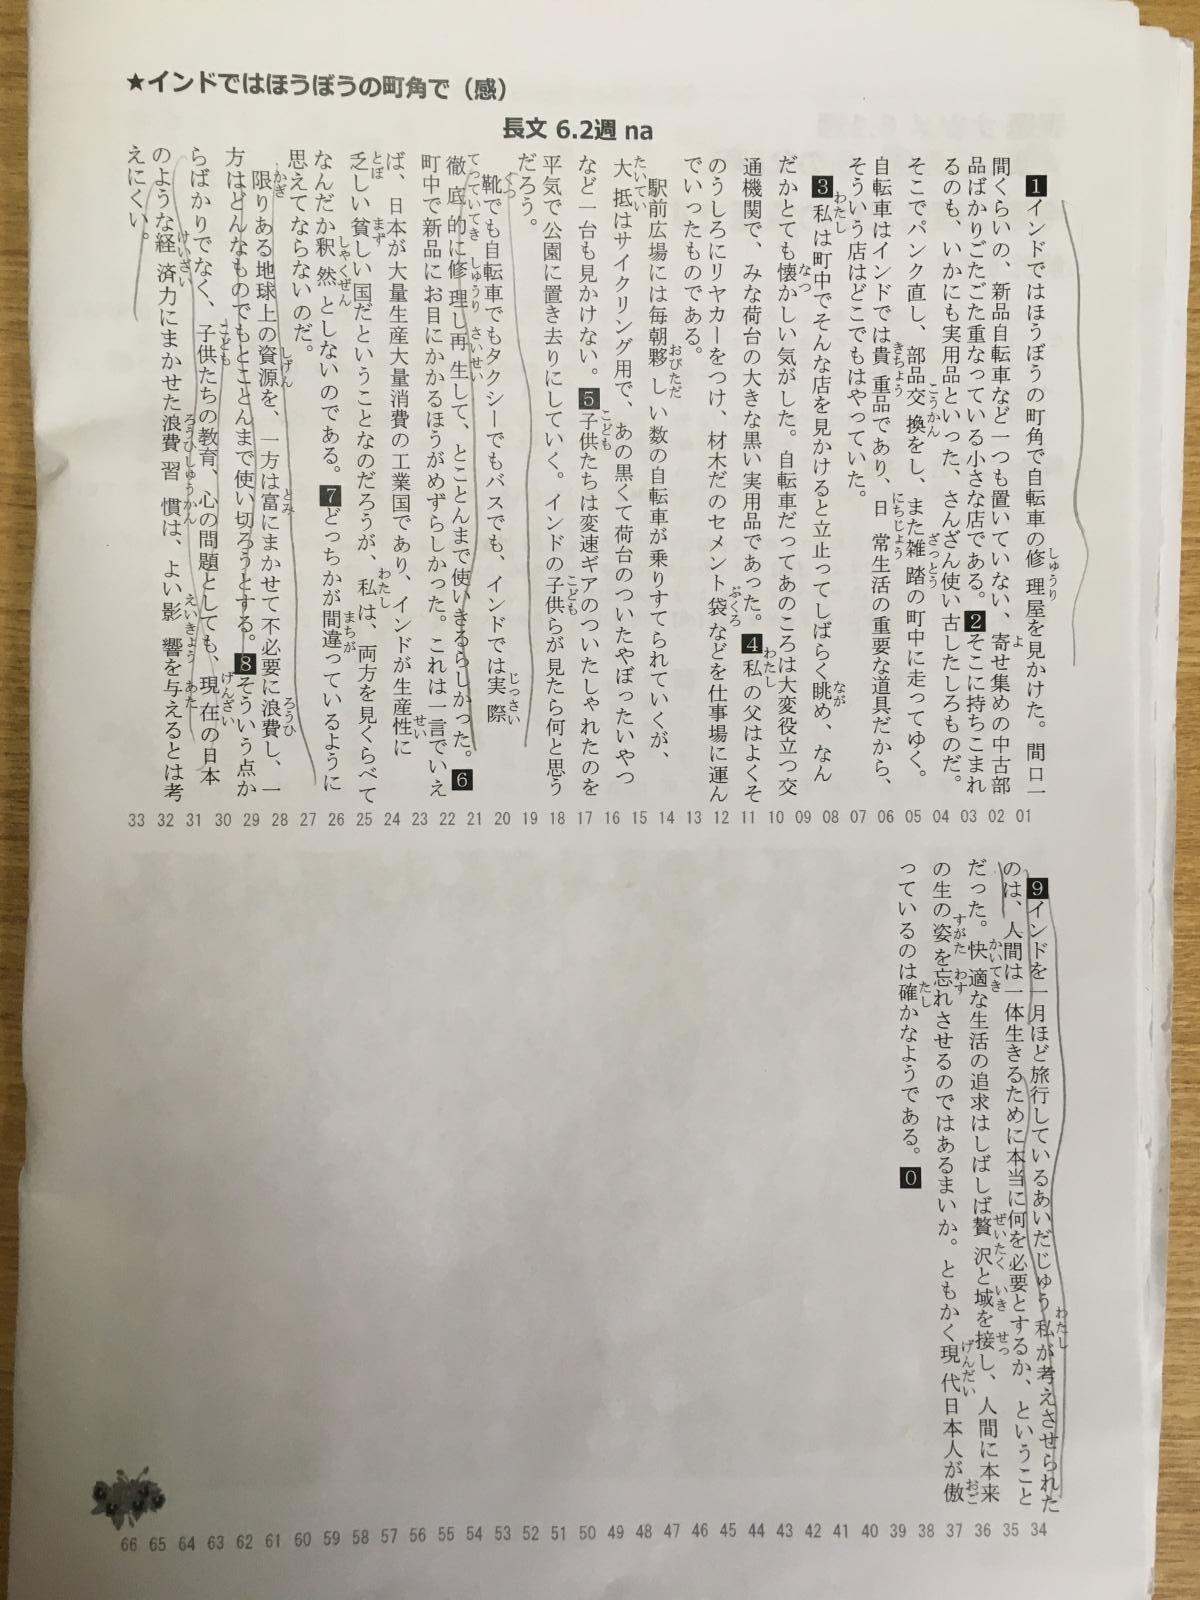 ★インドではほうぼうの町角で（感）
長文 6.2週 na
1インドではほうぼうの町角で自転車の修理屋を見かけた。間口一
間くらいの、新品自転車など一つも置いていない、寄せ集めの中古部
品ばかりごたごた重なっている小さな店である。2そこに持ちこまれ
るのも、いかにも実用品といった、さんざん使い古したしろものだ。
そこでパンク直し、部品交換をし、また雑踏の町中に走ってゆく。
自転車はインドでは貴重品であり、日常生活の重要な道具だから、
そういう店はどこでもはやっていた。
3私は町中でそんな店を見かけると立止ってしばらく眺め、なん
だかとても懐かしい気がした。自転車だってあのころは大変役立つ交
通機関で、みな荷台の大きな黒い実用品であった。4私の父はよくそ
のうしろにリヤカーをつけ、材木だのセメント袋などを仕事場に運ん
でいったものである。
駅前広場には毎朝夥しい数の自転車が乗りすてられていくが、
大抵はサイクリング用で、あの黒くて荷台のついたやぼったいやつ
など一台も見かけない。5子供たちは変速ギアのついたしゃれたのを
平気で公園に置き去りにしていく。インドの子供らが見たら何と思う
だろう。
靴でも自転車でもタクシーでもバスでも、インドでは実際
徹底的に修理し再生して、とことんまで使いきるらしかった。6
町中で新品にお目にかかるほうがめずらしかった。これは一言でいえ
ば、日本が大量生産大量消費の工業国であり、インドが生産性に
乏しい貧しい国だということなのだろうが、私は、両方を見くらべて
なんだか釈然としないのである。7どっちかが間違っているように
思えてならないのだ。
限りある地球上の資源を、一方は富にまかせて不必要に浪費し、一
方はどんなものでもとことんまで使い切ろうとする。8そういう点か
らばかりでなく、子供たちの教育、心の問題としても、現在の日本
のような経済力にまかせた浪費習慣は、よい影響を与えるとは考
えにくい。
33 32 31 30 29 28 27 26 25 24 23 22 21 20 19 18 17 16 15 14 13 12 11 10 09 08 07 06 05 04 03 02 01
9インドを一月ほど旅行しているあいだじゅう私が考えさせられた
のは、人間は一体生きるために本当に何を必要とするか、ということ
だった。快適な生活の追求はしばしば贅沢と域を接し、人間に本来
の生の姿を忘れさせるのではあるまいか。ともかく現代日本人が傲
っているのは確かなようである。0
66 65 64 63 62 61 60 59 58 57 56 55 54 53 52 51 50 49 48 47 46 45 44 43 42 41 40 39 38 37 36 35 34